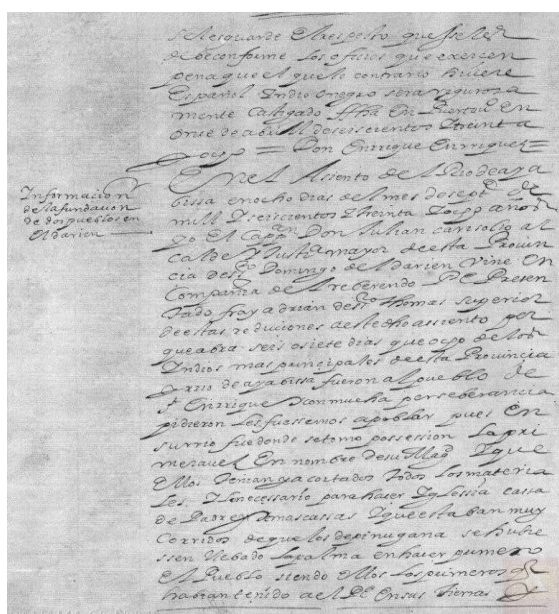 se les guarde el respeto que se les
de conforme los oficios que exercen
pena que el que lo contrario hiciere
Español Indio o negro sera rigurosa
mente castigado ffha En Puertou En
onze de abril de seiscientos treinta
y ocho = Don Enrrique Enrriquez =
Informacion
de la fundacion
de dos pueblos en
El darien
En el Asiento del Rio de aya
bissa en ocho dias del mes de sepe de
mill y seiscientos y treinta y ocho años
yo El Capan Don Julian carrisolio al
calde y Justa mayor de esta Provin
cia de sto Domingo de el darien Vine En
Compania de el reberendo Pe Presen
tado fray adrian de sto thomas superior
de estas reduciones a este dho assiento por
que abra seis o siete dias que ocho de los
Indios mas principales de esta Provincia
y rio de ayabissa fueron al pueblo de
s Enrrique y con mucha perseberancia
pidieron les fuessemos a poblar pues En
su rrio fue donde se tomo possession la pri
mera vez En nombre de su Magd y que
Ellos tenian ya cortados todos los materia
les y lo necessario para hacer Yglesia cassa
de Padre y demas cassas y que estaban muy
Corridos de que los de pinugana se hubie
ssen llebado la palma en hacer primero
El Pueblo siendo Ellos los primeros q
habian tenido a el Pe En sus tierras y